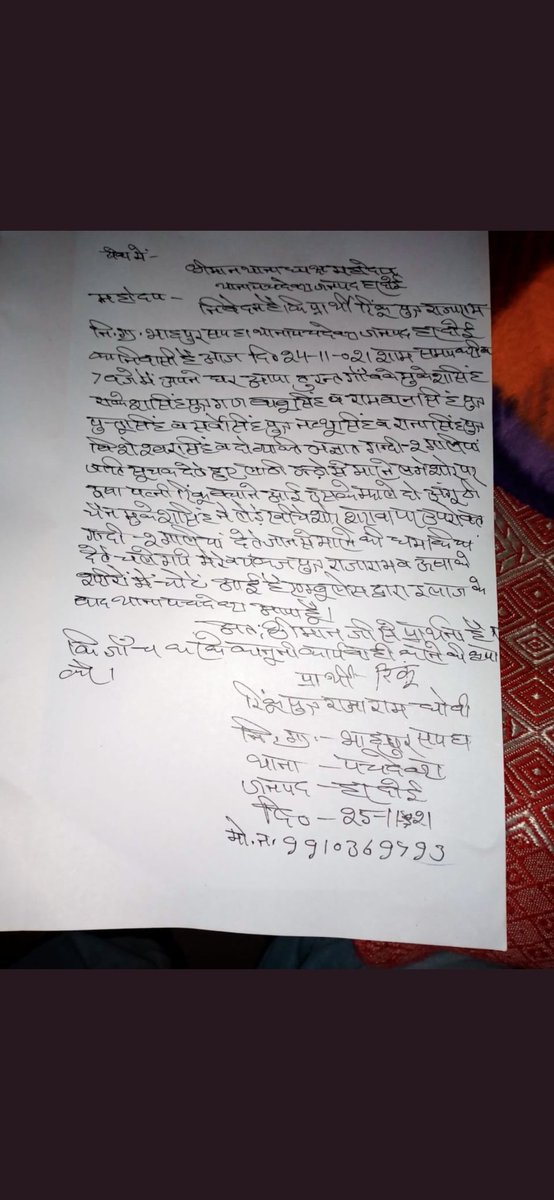 सेवा में -
श्रीमान थानाध्यक्ष महोदय
थाना पचदेवरा जनपद हरदोई
महोदय - निवेदन है कि प्रार्थी रिंकू पुत्र राजाराम
नि. ग्रा. भाहपुर सपहा थाना पचदेवरा जनपद हरदोई
का निवासी है आज दि० 24-11-021 शाम समय करीब
7 बजे मैं अपने घर आया तुरन्त गाँव के मुकेश सिंह
राकेश सिंह पुत्रगण बाबू सिंह व रामबान सिंह पुत्र
सिंह व सर्वा सिंह पुत्र नत्थू सिंह व राना सिंह पुत्र
विशेश्वर सिंह व दो व्यक्ति अज्ञात गन्दी-२ गालियां
जाति सूचक देते हुए लाठी डन्डो से मारने लगे शोर पर
ऊषा पत्नी रिंकू बचाने आई उसके
मुकेश सिंह ने उपरोक्त
गन्दी-२ गालियां देते जान से मारने की धमकियां
देते चले गये मेरे व पुत्र राजाराम व ऊषा के
शरीरों में चोट आई है एम्बुलेंस द्वारा इलाज के
बाद थाना पचदेवरा आया है।
अतः श्रीमान जी से प्रार्थना है
कि जाँच करके कानूनी कार्यवाही करने की कृपा
करें।
प्रार्थी रिंकू
रिंकू पुत्र राजाराम धोबी
नि. ग्रा. - भाहपुर सपहा
थाना - पचदेवरा
जनपद - हरदोई
दि० - 25-11-21
मो. न. 9910369793